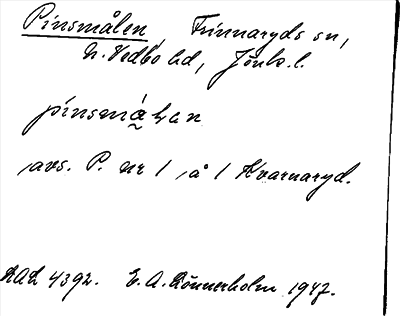 Pinsmålen, Frinnaryds sn,
N. Vedbo hd, Jönk. l.
avs. P. nr 1 å 1 Kvarnaryd.
4392. E. A. Rönnerholm 1947.